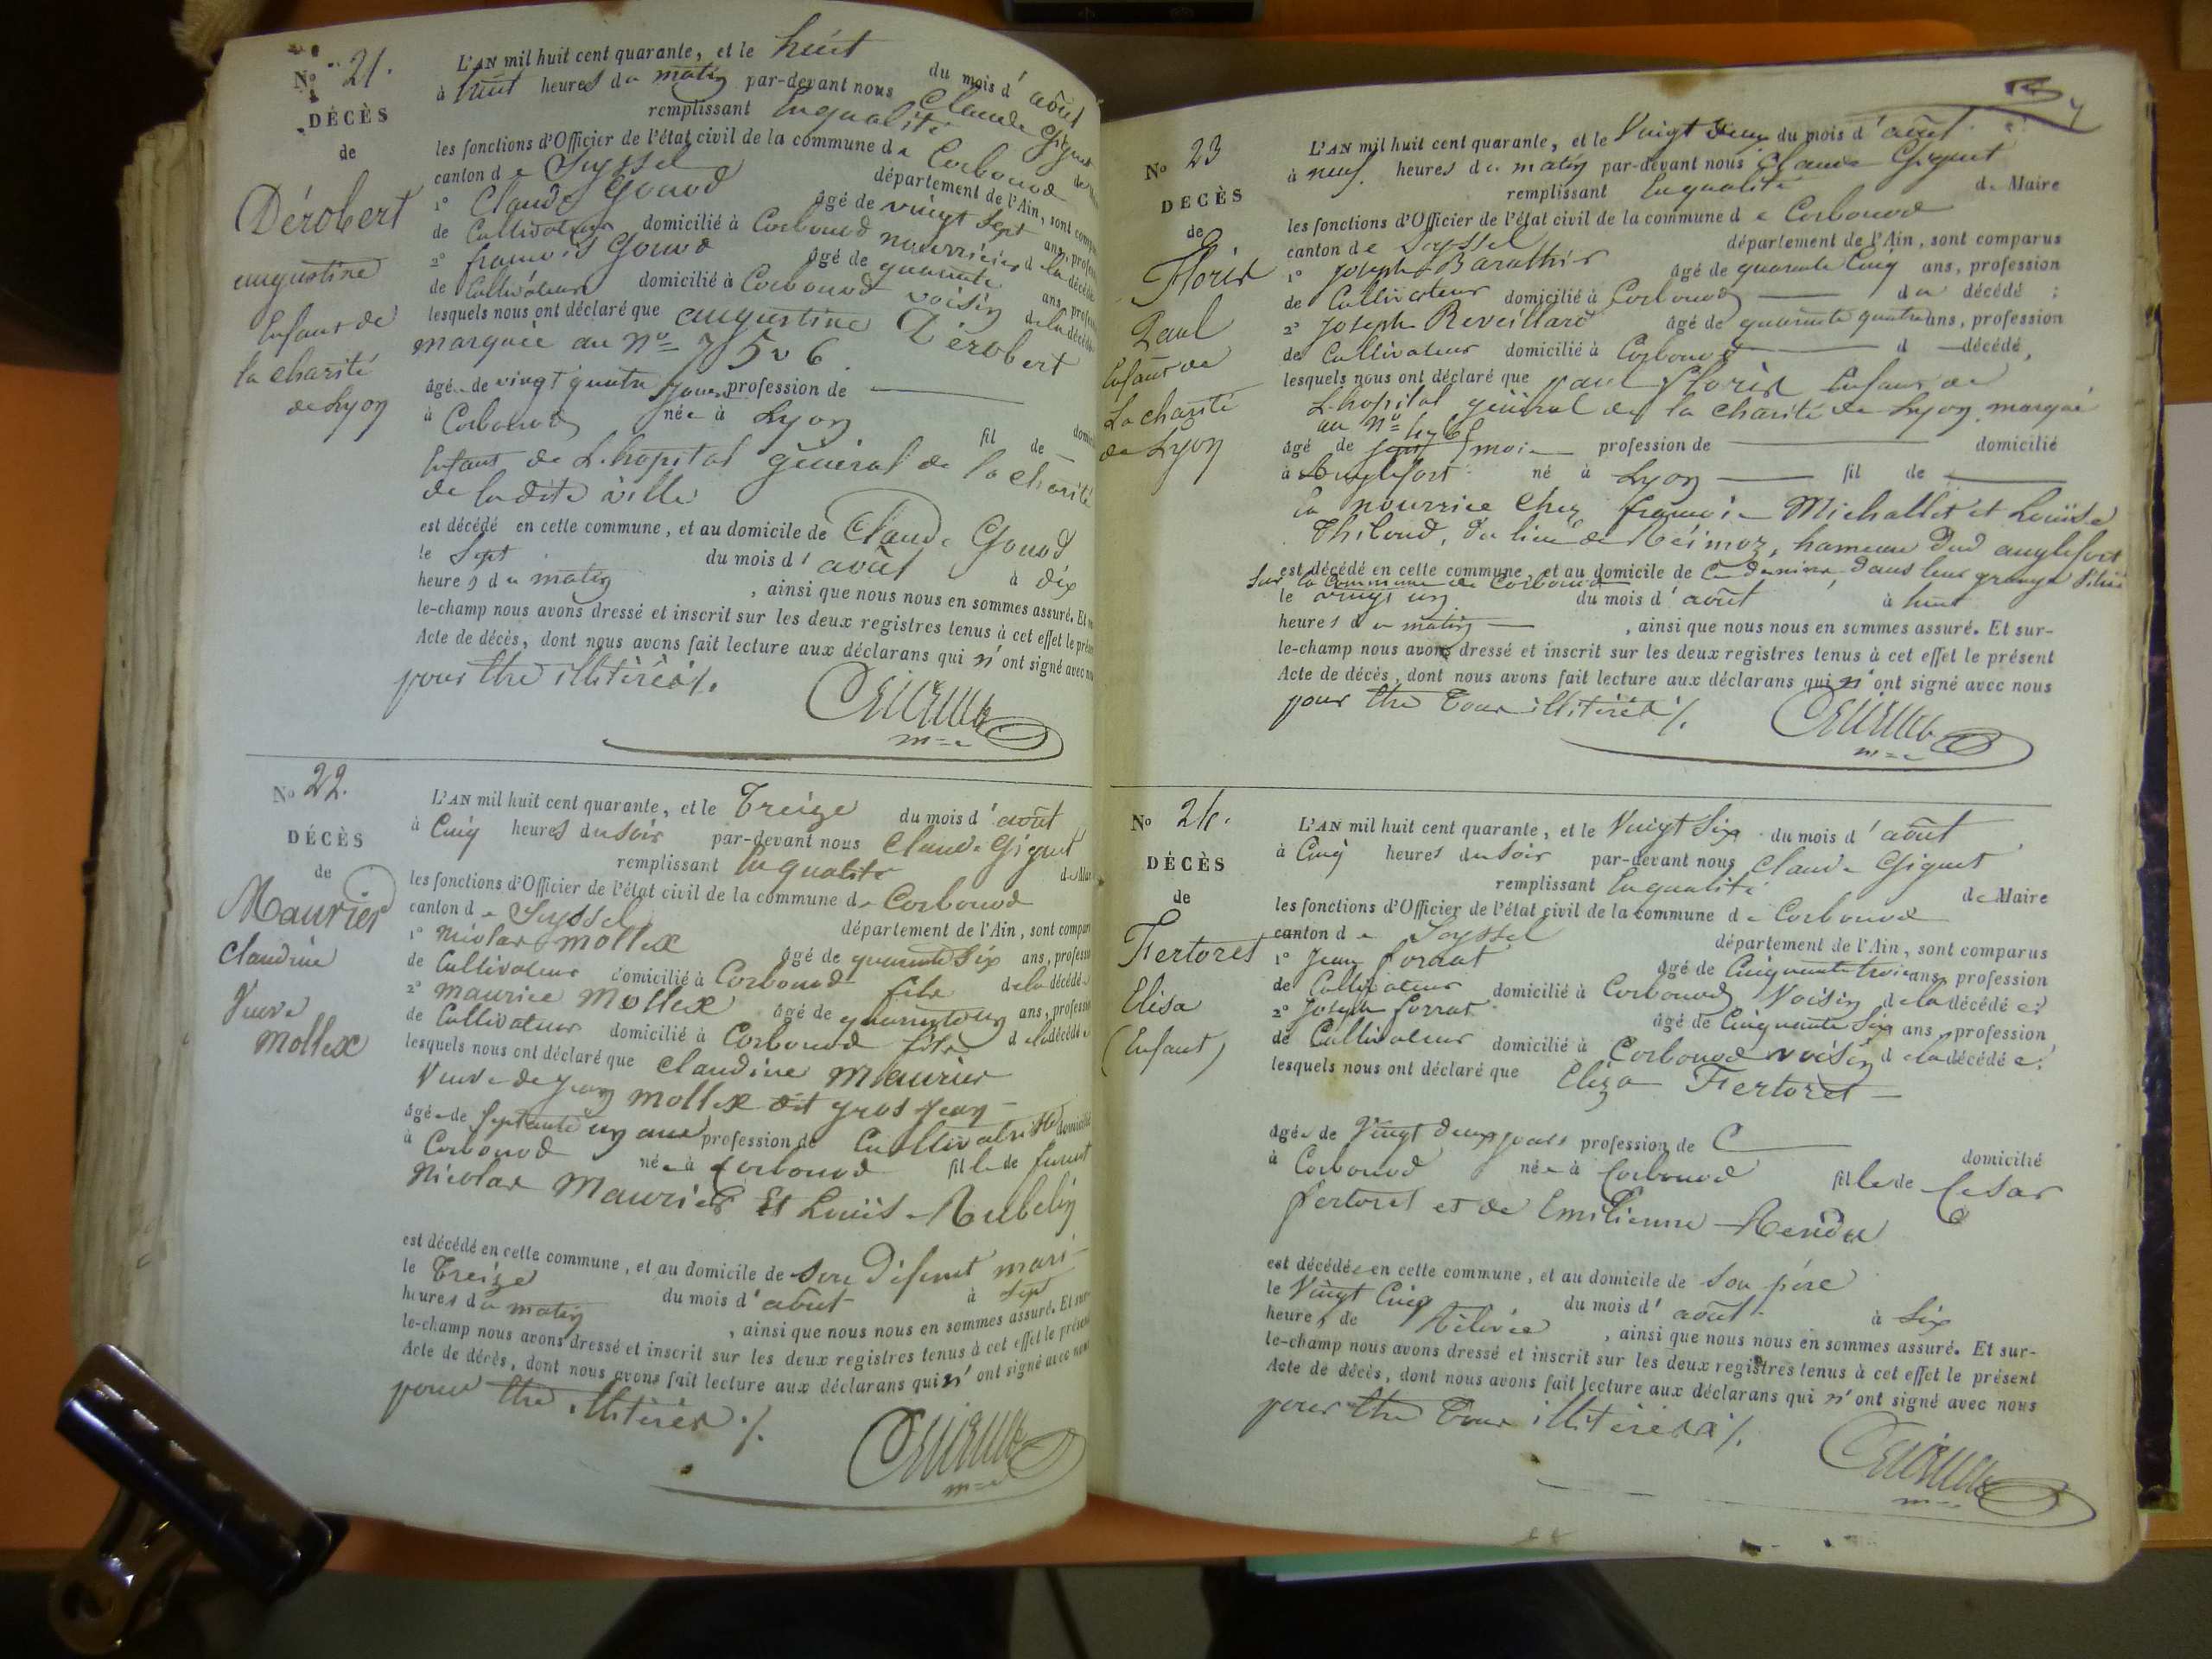 No 21.
DÉCÈS
de
Dérobert
augustine
Enfant de
la charité
de Lyon
L'AN mil huit cent quarante, et le huit du mois d'août
à huit heures du matin par-devant nous Claude Giguet
remplissant en qualité de
les fonctions d'Officier de l'état civil de la commune de Corbonod
canton de Seyssel département de l'Ain, sont
1° Claude Gonod âgé de vingt sept ans,
de Cultivateur domicilié à Corbonod nourricier de la décédé
2° françois Gonod âgé de quarante ans,
de Cultivateur domicilié à Corbonod voisin de la décédé
lesquels nous ont déclaré que augustine Dérobert
marquée au No 7506
âgée de vingt quatre jours profession de
à Corbonod née à Lyon fil de
Enfant de L'hopital général de la charité
de ladite ville
est décédé en cette commune, et au domicile de Claude Gonod
le Sept du mois d'août à dix
heures du matin, ainsi que nous nous en sommes assuré. Et
le-champ nous avons dressé et inscrit sur les deux registres tenus à cet effet le
Acte de décès, dont nous avons fait lecture aux déclarans qui n'ont signé avec
pour être illitérés ./.
No 22.
DÉCÈS
de
Maurier
Claudine
Veuve
Mollex
L'AN mil huit cent quarante, et le Treize du mois d'août
à Cinq heures du soir par-devant nous Claude Giguet
remplissant en qualité de
les fonctions d'Officier de l'état civil de la commune de Corbonod
canton de Seyssel département de l'Ain, sont
1° Nicolas Mollex âgé de quarante six ans,
de Cultivateur domicilié à Corbonod fils de la décédée
2° Maurice Mollex âgé de quarante un ans,
de Cultivateur domicilié à Corbonod fils de la décédée
lesquels nous ont déclaré que Claudine Maurier
Veuve de Jean Mollex dit gros Jean
âgée de septante un ans profession de Cultivatrice domicilié
à Corbonod née à Corbonod fille de
Nicolas Maurier Et Louise Aubelin
est décédé en cette commune, et au domicile de son défunt mari
le Treize du mois d'août à sept
heures du matin, ainsi que nous nous en sommes assuré. Et
le-champ nous avons dressé et inscrit sur les deux registres tenus à cet effet le
Acte de décès, dont nous avons fait lecture aux déclarans qui n'ont signé avec nous
pour être illitérés ./.
No 23
DÉCÈS
de
Floris
Paul
Enfant de
La charité
de Lyon
L'AN mil huit cent quarante, et le Vingt deux du mois d'août
à neuf heures du matin par-devant nous Claude Giguet
remplissant en qualité de Maire
les fonctions d'Officier de l'état civil de la commune de Corbonod
canton de Seyssel département de l'Ain, sont comparus
1° Joseph Barathier âgé de quarante Cinq ans, profession
de Cultivateur domicilié à Corbonod du décédé;
2° Joseph Reveillard âgé de quarante quatre ans, profession
de Cultivateur domicilié à Corbonod d décédé,
lesquels nous ont déclaré que paul floris Enfant de
L'hopital général de la charité de Lyon marqué
au No
âgé de mois profession de domicilié
à Anglefort né à Lyon fil de
En nourrice chez françois Michallet et Louise
Thiloud, du lieu de hameau d'anglefort
est décédé en cette commune, et au domicile de ce dernier dans leur grange
sur la Commune de Corbonod
le vingt un du mois d'août à huit
heures du matin, ainsi que nous nous en sommes assuré. Et sur-
le-champ nous avons dressé et inscrit sur les deux registres tenus à cet effet le présent
Acte de décès, dont nous avons fait lecture aux déclarans qui n'ont signé avec nous
pour être tous illitérés ./.
No 24.
DÉCÈS
de
Fertoret
Elisa
(Enfant)
L'AN mil huit cent quarante, et le Vingt Six du mois d'août
à Cinq heures du soir par-devant nous Claude Giguet
remplissant en qualité de Maire
les fonctions d'Officier de l'état civil de la commune de Corbonod
canton de Seyssel département de l'Ain, sont comparus
1° Jean forrat âgé de Cinquante trois ans, profession
de Cultivateur domicilié à Corbonod Voisin de la décédée;
2° Joseph forrat âgé de Cinquante Six ans, profession
de Cultivateur domicilié à Corbonod voisin de la décédée;
lesquels nous ont déclaré que Eliza Fertoret
âgée de Vingt deux jours profession de
domicilié
à Corbonod née à Corbonod fille de Cesar
fertoret et de Emilienne
est décédée en cette commune, et au domicile de son père
le Vingt Cinq du mois d'août à Six
heures de relevée, ainsi que nous nous en sommes assuré. Et sur-
le-champ nous avons dressé et inscrit sur les deux registres tenus à cet effet le présent
Acte de décès, dont nous avons fait lecture aux déclarans qui n'ont signé avec nous
pour être tous illitérés ./.